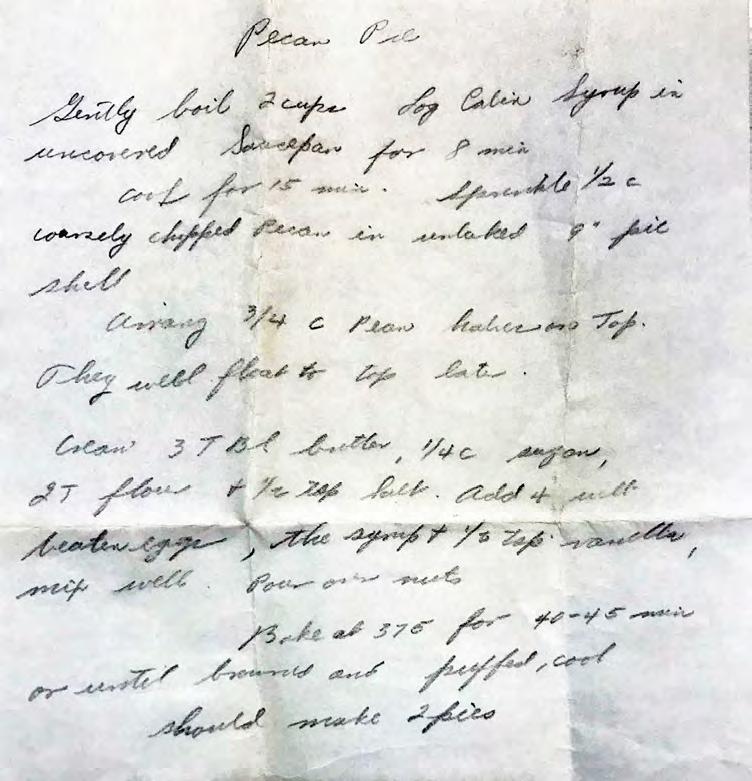 Pecan Pie
Gently boil 2 cups Log Cabin Syrup in
uncovered Saucepan for 8 min
cool for 15 min. Sprinkle 1/2 c
coarsely chopped Pecan in unbaked 9" pie
shell
Arrang 3/4 c Pecan halves on Top.
They will float to top later.
Cream 3 TBl butter, 1/4 c sugar,
2T flour + 1/2 tsp salt. Add 4 well
beaten eggs, the syrup + 1/2 tsp vanilla,
mix well. Pour over nuts
Bake at 375 for 40-45 min
or until browned and puffed, cool
should make 2 pies